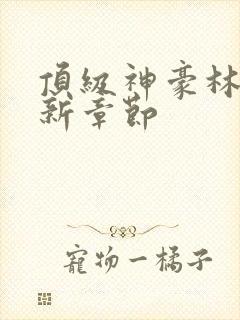 頂級神豪林
新章節
寵物一橘子